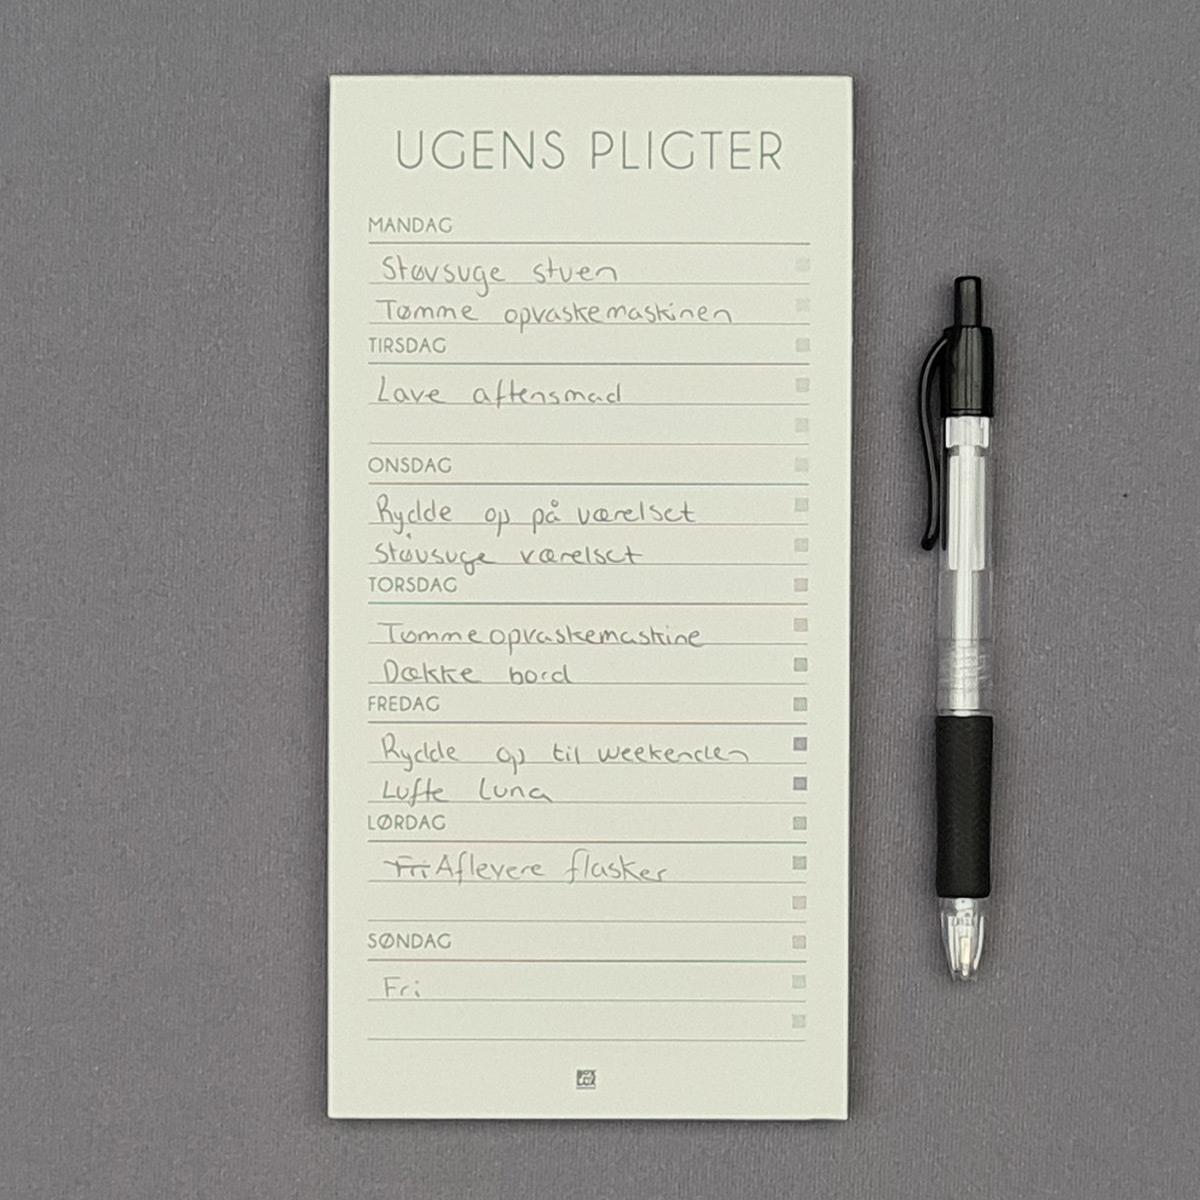 UGENS PLIGTER
MANDAG
Støvsuge stuen
Tømme opvaskemaskinen
TIRSDAG
Lave aftensmad
ONSDAG
Rydde op på værelset
Støvsuge værelset
TORSDAG
Tømme opvaskemaskine
Dække bord
FREDAG
Rydde op til weekenden
Lufte Luna
LØRDAG
Fri Aflevere flasker
SØNDAG
Fri